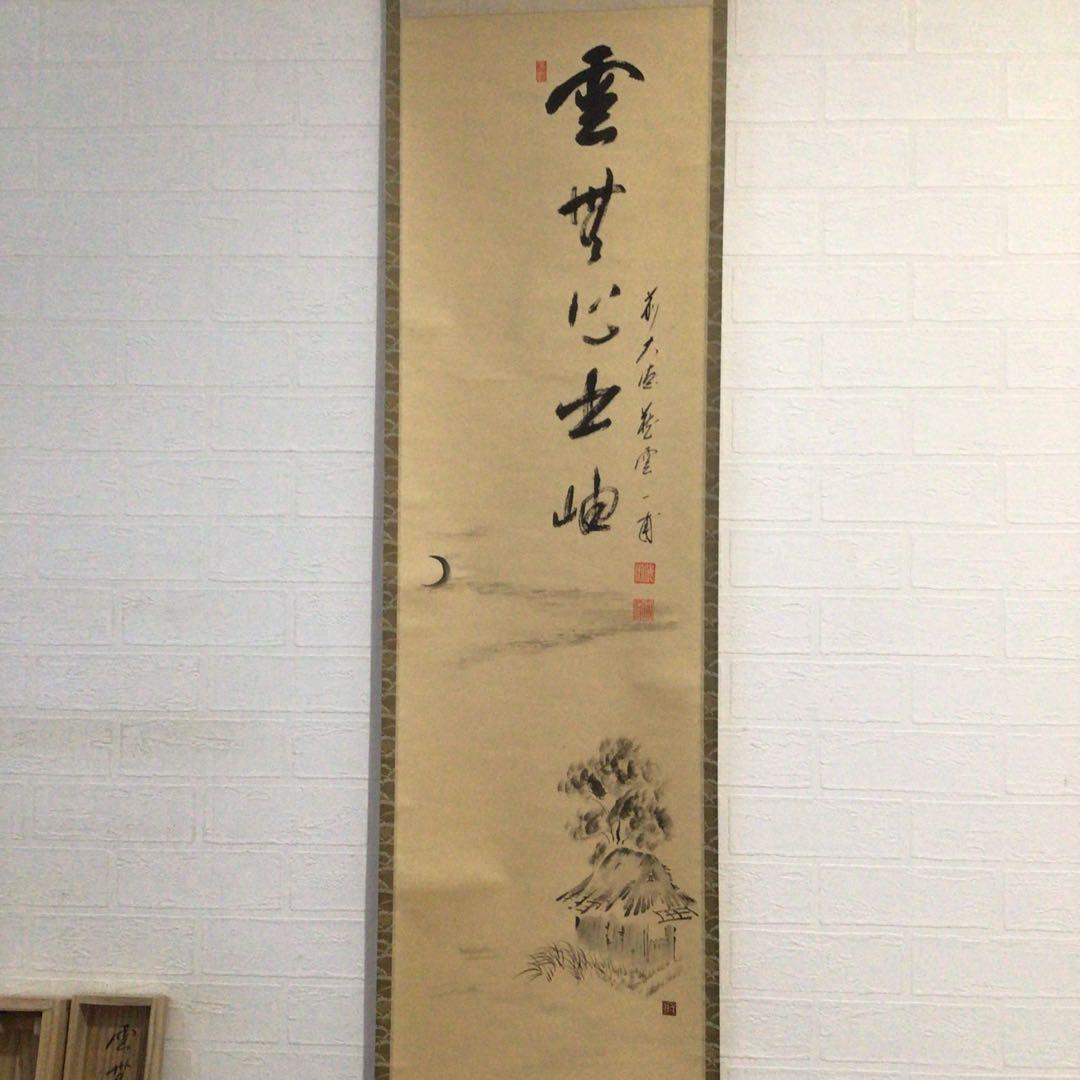 雲無心出岫
前大徳藤雲一甫
雲無